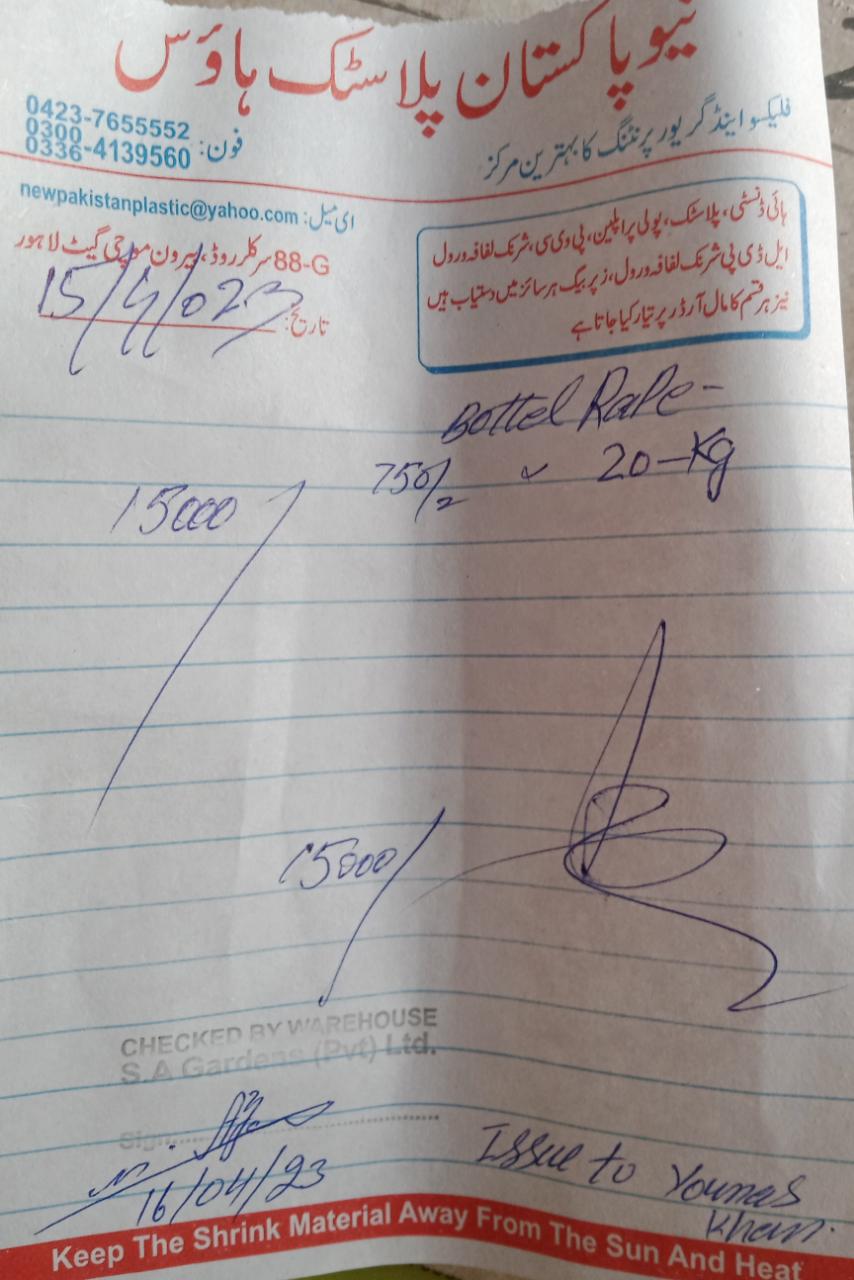 نیو پاکستان پلاسٹک ہاؤس
فلیکسو اینڈ گریور پرنٹنگ کا بہترین مرکز
فون: 0423-7655552
0300
0336-4139560
ای میل: newpakistanplastic@yahoo.com
88-G سرکلر روڈ، بیرون موچی گیٹ لاہور
ہائی ڈنسٹی، پلاسٹک، پولی پراپلین، پی وی سی، شرنک لفافہ و رول
ایل ڈی پی شرنک لفافہ و رول، زپر بیگ ہر سائز میں دستیاب ہیں
نیز ہر قسم کا مال آرڈر پر تیار کیا جاتا ہے
تاریخ: 15/4/023
Bottel RaPe-
15000/ 750/2 20-Kg
15000/
CHECKED BY WAREHOUSE
S.A Gardens (Pvt) Ltd.
Sign
16/04/23
Issue to Younas
Khan.
Keep The Shrink Material Away From The Sun And Heat